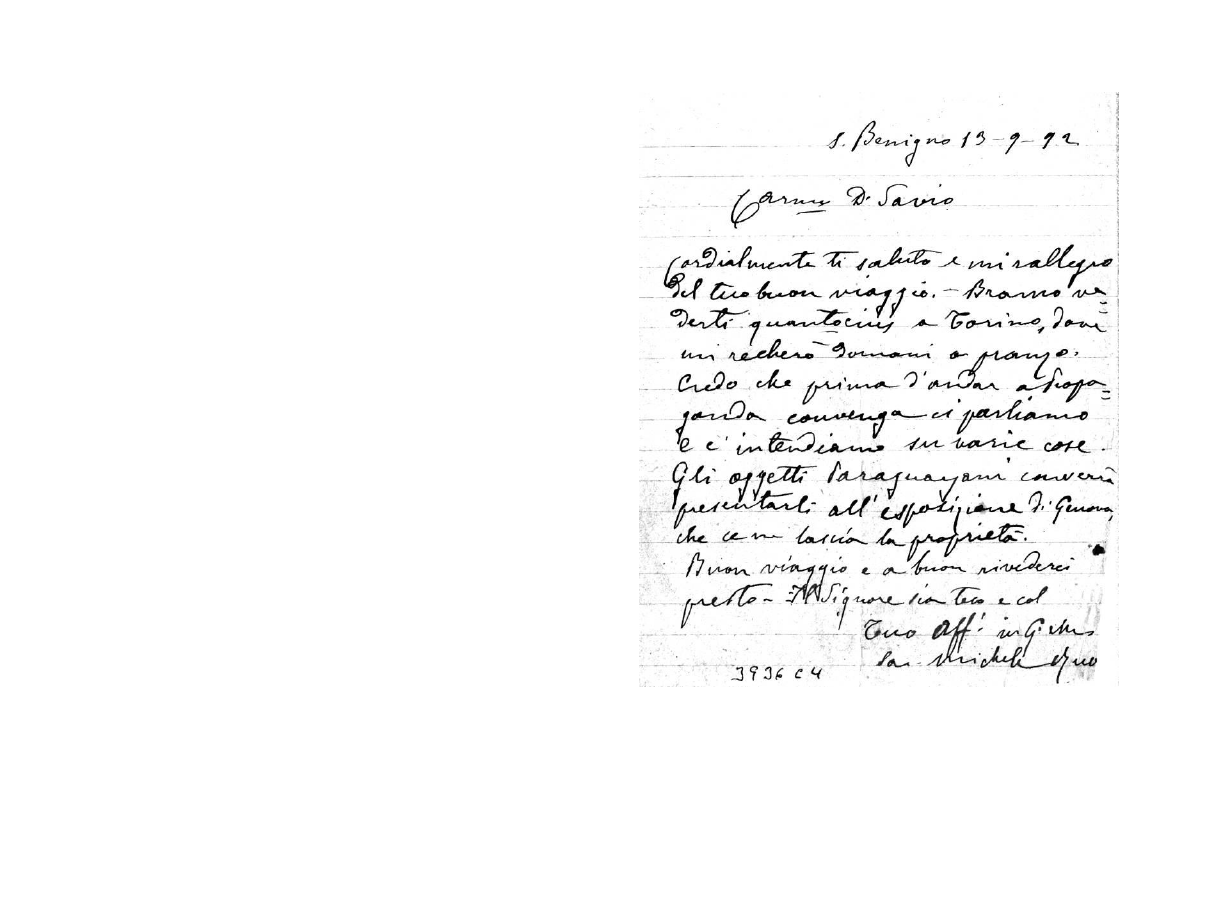 S. Benigno 13-9-92
Carmo D. Savio
Cordialmente ti saluto e mi rallegro
del tuo buon viaggio. - Bramo ve=
derti quantocius a Torino, dove
mi recherò domani a pranzo.
Credo che prima d'andar a Propa=
ganda convenga ci parliamo
e c'intendiamo su varie cose.
Gli oggetti Paraguayani converrà
presentarli all'esposizione di Genova,
che ce ne lascia la proprietà.
Buon viaggio e a buon rivederci
presto - Il Signore sia teco e col
Tuo Aff. in G.
Sac. Michele Rua
3936 C4